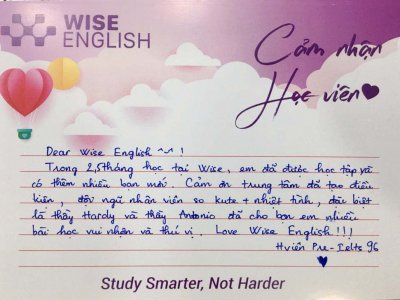 WISE
ENGLISH
Cảm nhận
Học viên
Dear Wise English ^-^ !
Trong 2,5 tháng học tại Wise, em đã được học tập và
có thêm nhiều bạn mới. Cảm ơn trung tâm đã tạo điều
kiện, đội ngũ nhân viên so kute + nhiệt tình, đặc biệt
là thầy Hardy và thầy Antonio đã cho bọn em nhiều
bài học vui nhộn và thú vị. Love Wise English!!!
Hviên Pre-Ielts 96
Study Smarter, Not Harder